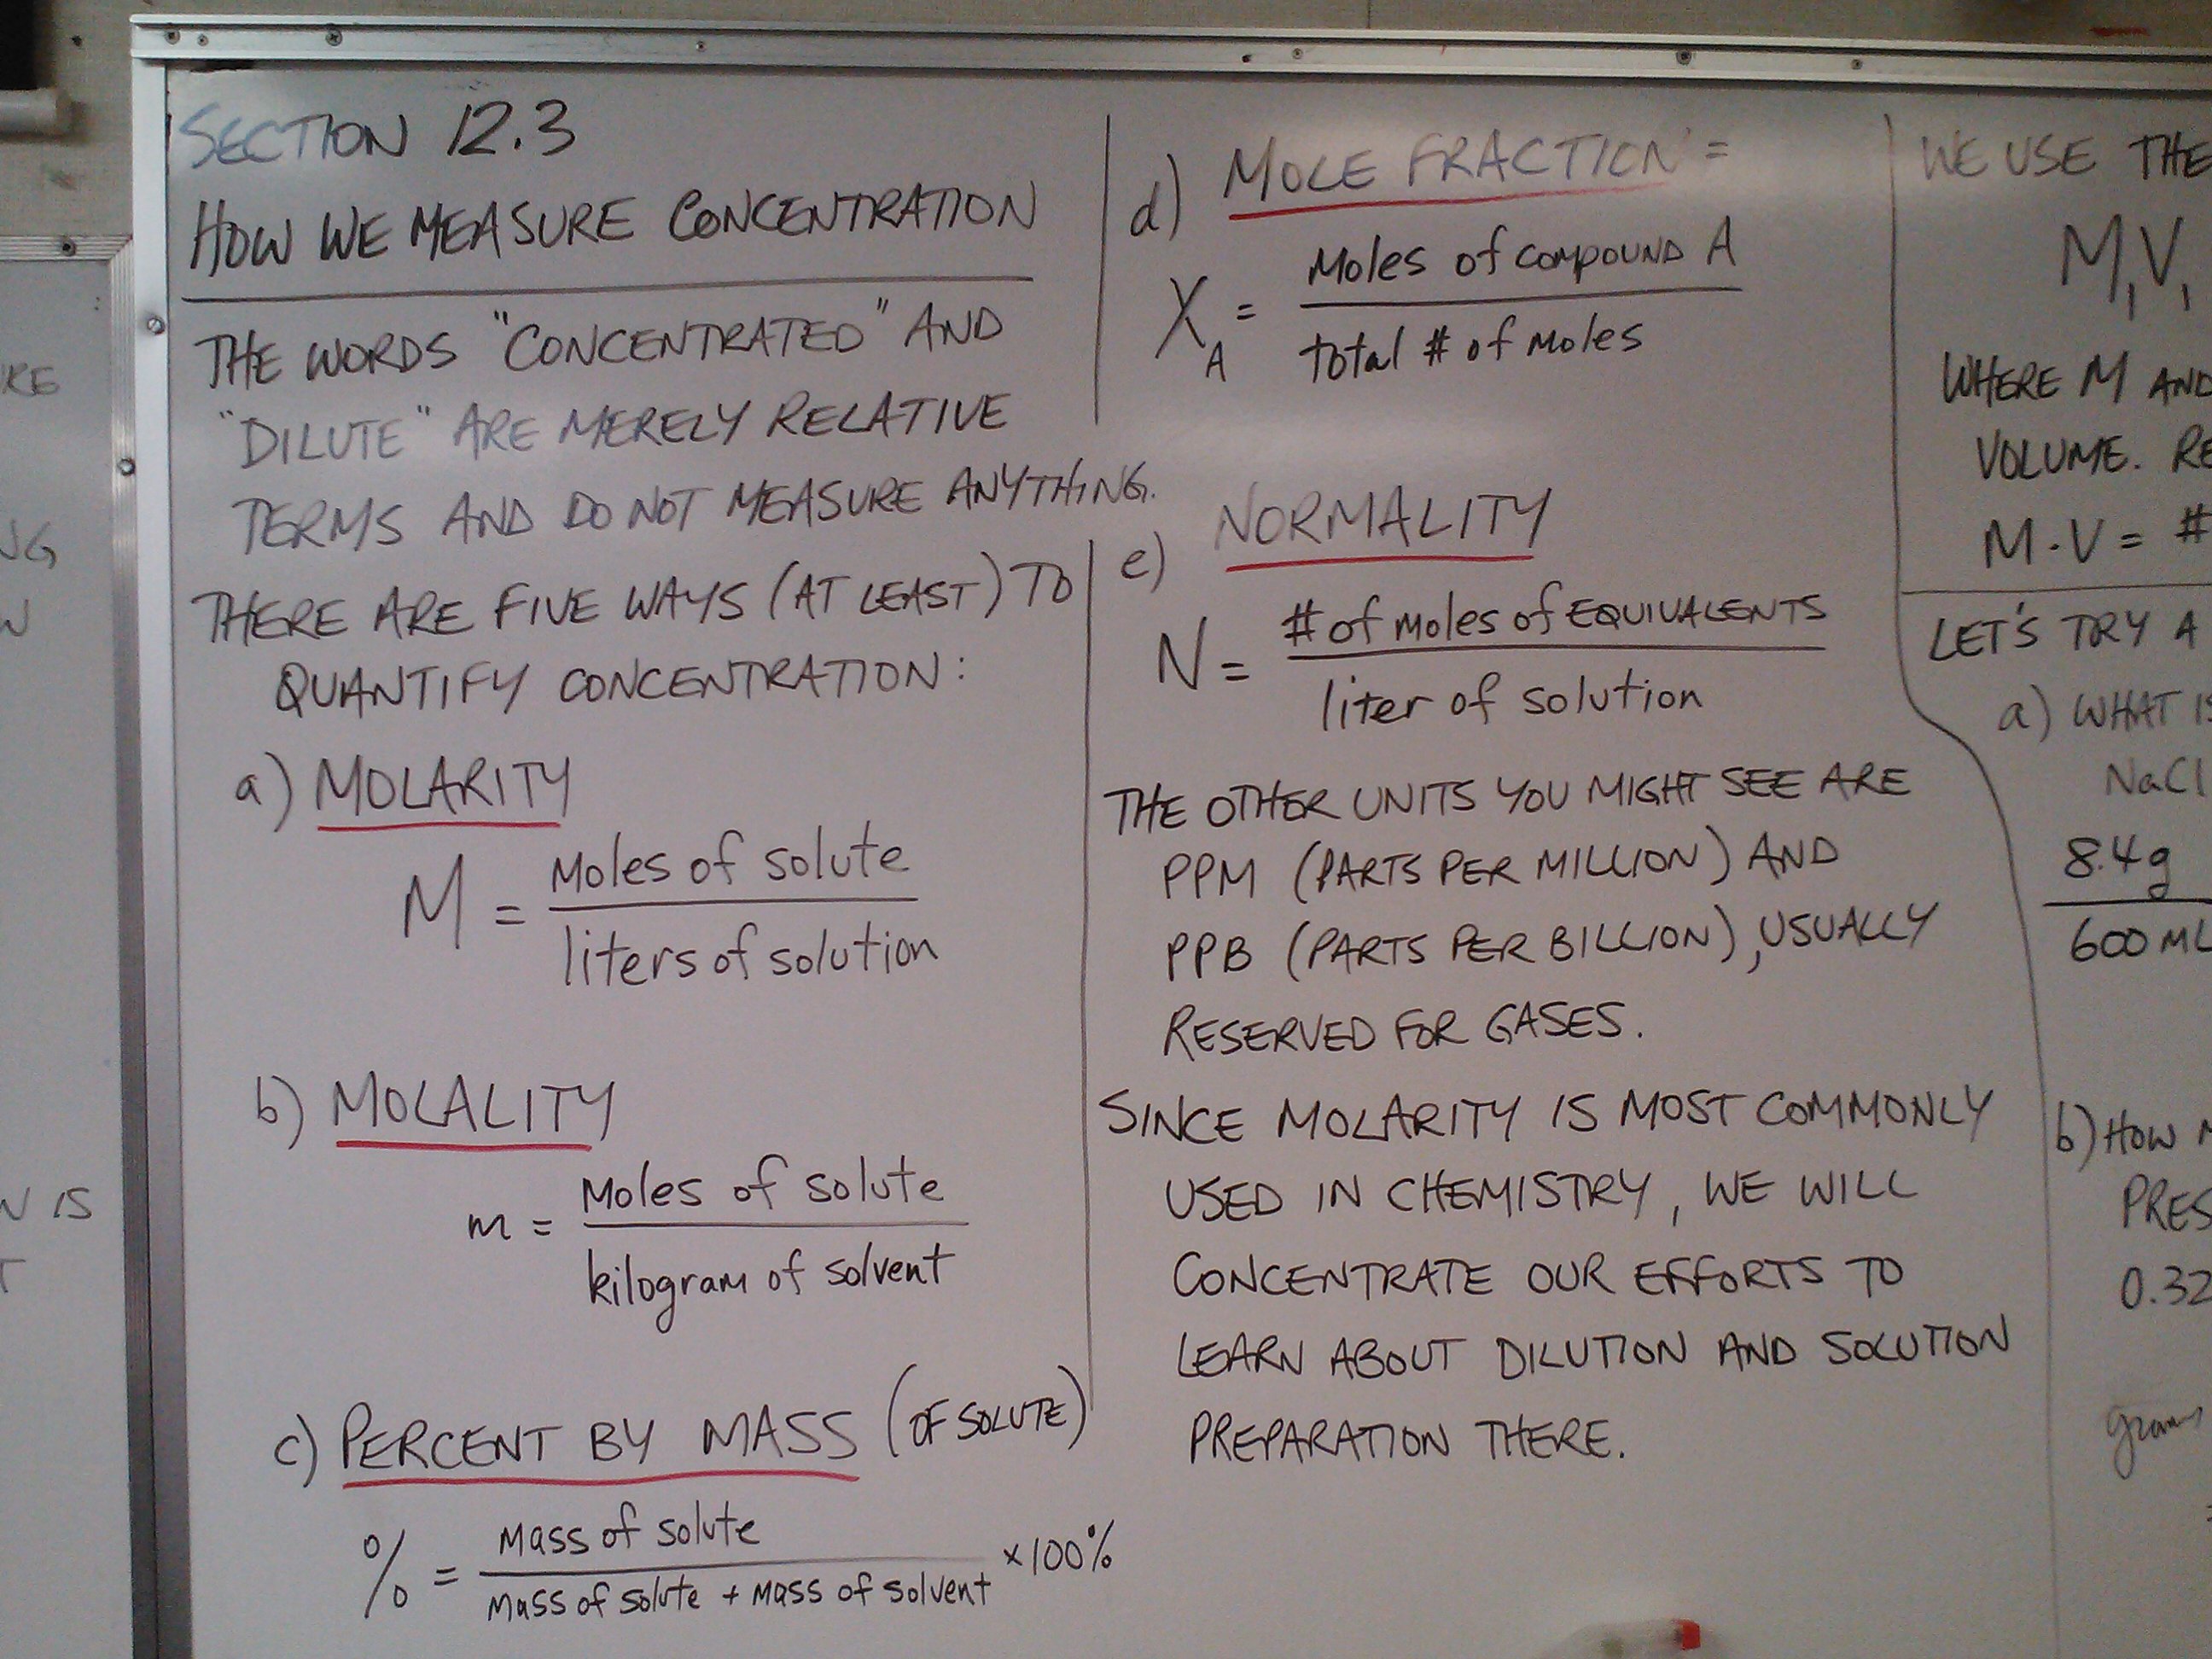 SECTION 12.3
HOW WE MEASURE CONCENTRATION
THE WORDS "CONCENTRATED" AND
"DILUTE" ARE MERELY RELATIVE
TERMS AND DO NOT MEASURE ANYTHING.
THERE ARE FIVE WAYS (AT LEAST) TO
QUANTIFY CONCENTRATION:
a) MOLARITY
M = Moles of solute
liters of solution
b) MOLALITY
m = Moles of solute
kilogram of solvent
c) PERCENT BY MASS (OF SOLUTE)
% = Mass of solute
Mass of solute + Mass of solvent ×100%
d) MOLE FRACTION =
X_A = Moles of COMPOUND A
total # of Moles
e) NORMALITY
N = # of moles of EQUIVALENTS
liter of solution
THE OTHER UNITS YOU MIGHT SEE ARE
PPM (PARTS PER MILLION) AND
PPB (PARTS PER BILLION), USUALLY
RESERVED FOR GASES.
SINCE MOLARITY IS MOST COMMONLY
USED IN CHEMISTRY, WE WILL
CONCENTRATE OUR EFFORTS TO
LEARN ABOUT DILUTION AND SOLUTION
PREPARATION THERE.
WE USE THE
M₁V₁
WHERE M AND
VOLUME. RE
M·V = #
LET'S TRY A
a) WHAT IS
NaCl
8.4g
600 ML
b) HOW M
PRES
0.32
grams
RE
NG
W
N IS
T